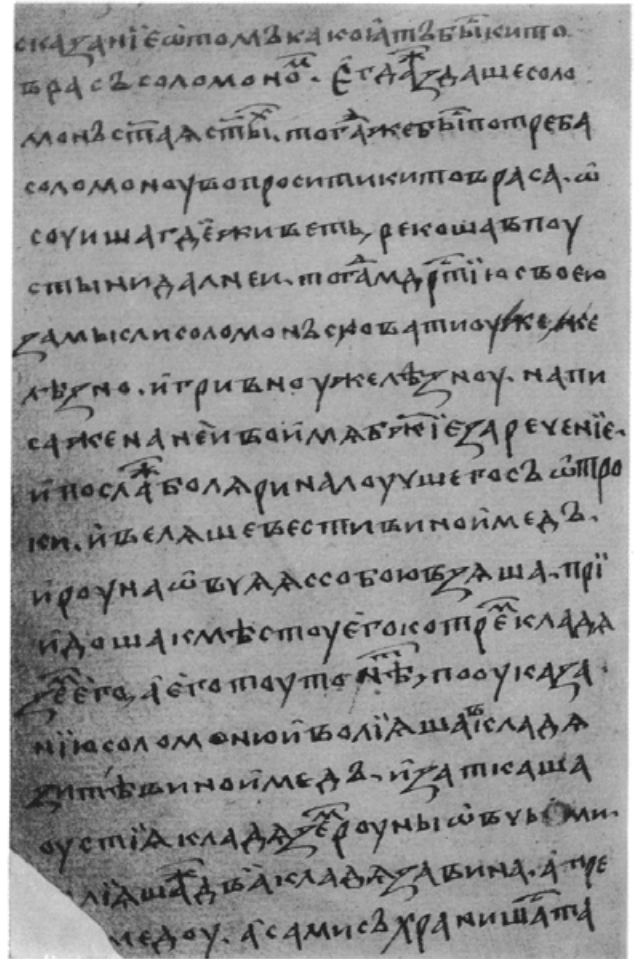 сказанїе ѿ томъ како ꙗтъ бы китов
врасъ соломоном. Егда ж здаше соло
монъ стаꙗ стыⷯ. тогда же бы потреба
соломоноу вопросити китовраса. ѡ
соуиша где живеть, рекоша в поу
стыни далнеи. тогда мдртїю своею
замысли соломонъ сковати оуже же
лѣзно. и гривноу желѣзноу. напи
са же на неи во имѧ бжїе заречение.
и посла ж болѧрина лоучшего съ ѿтро
ки. и велѧше вести вино и медъ.
и роуна ѡвчаꙗ с собою взѧша. прї
идоша к мѣстоу его ко трем кладѧ
зем его, а его тоу то нѣ, по оуказа
нїю соломоню и волїꙗша в кладѧ
зи тѣ вино и медъ. и заткаша
оустїꙗ кладѧзем роуны ѡвчьими.
лїꙗша ж два кладѧзѧ вина. а тре
медоу. а сами съхранишасѧ